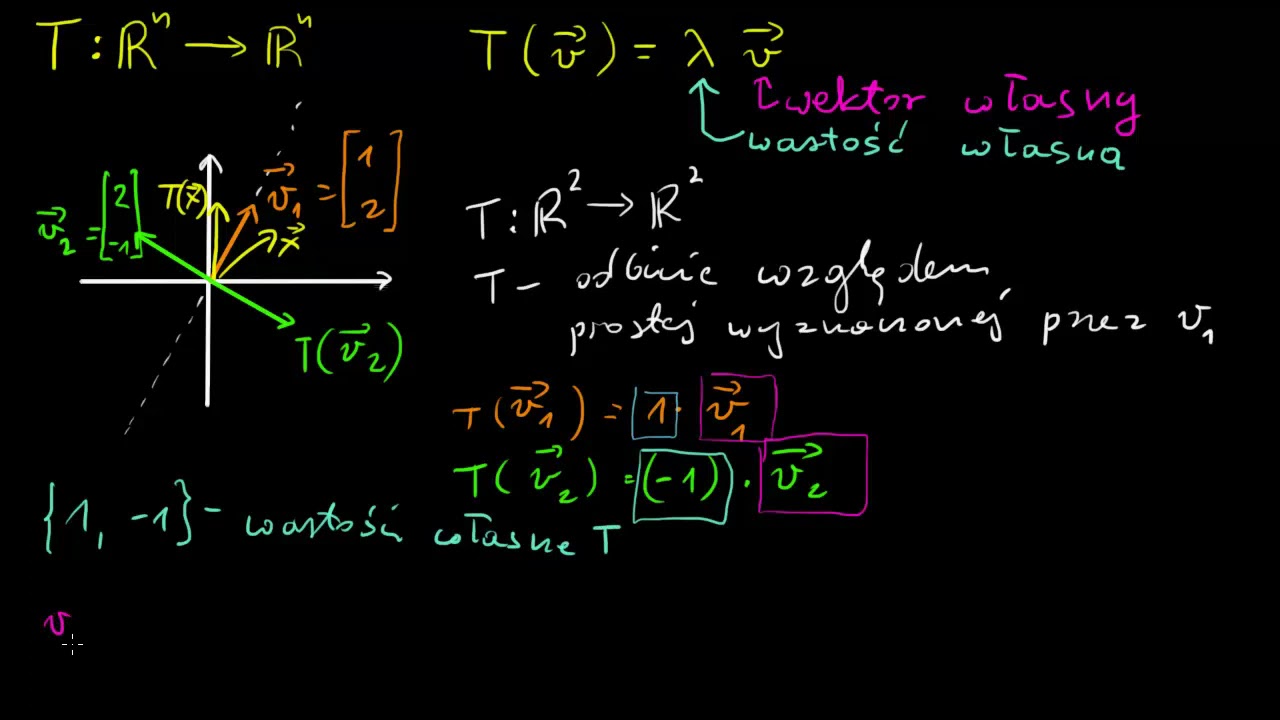 T : ℝⁿ → ℝⁿ
T(v⃗) = λ v⃗
wektor własny
wastość własna
v⃗₁ = [1 2]
T(x⃗)
x⃗
v⃗₂ = [2 -1]
T(v⃗₂)
T : ℝ² → ℝ²
T - odbicie względem
prostej wyznaczonej przez v₁
T(v⃗₁) = 1 · v⃗₁
T(v⃗₂) = (-1) · v⃗₂
{1, -1} - wastości własne T
v